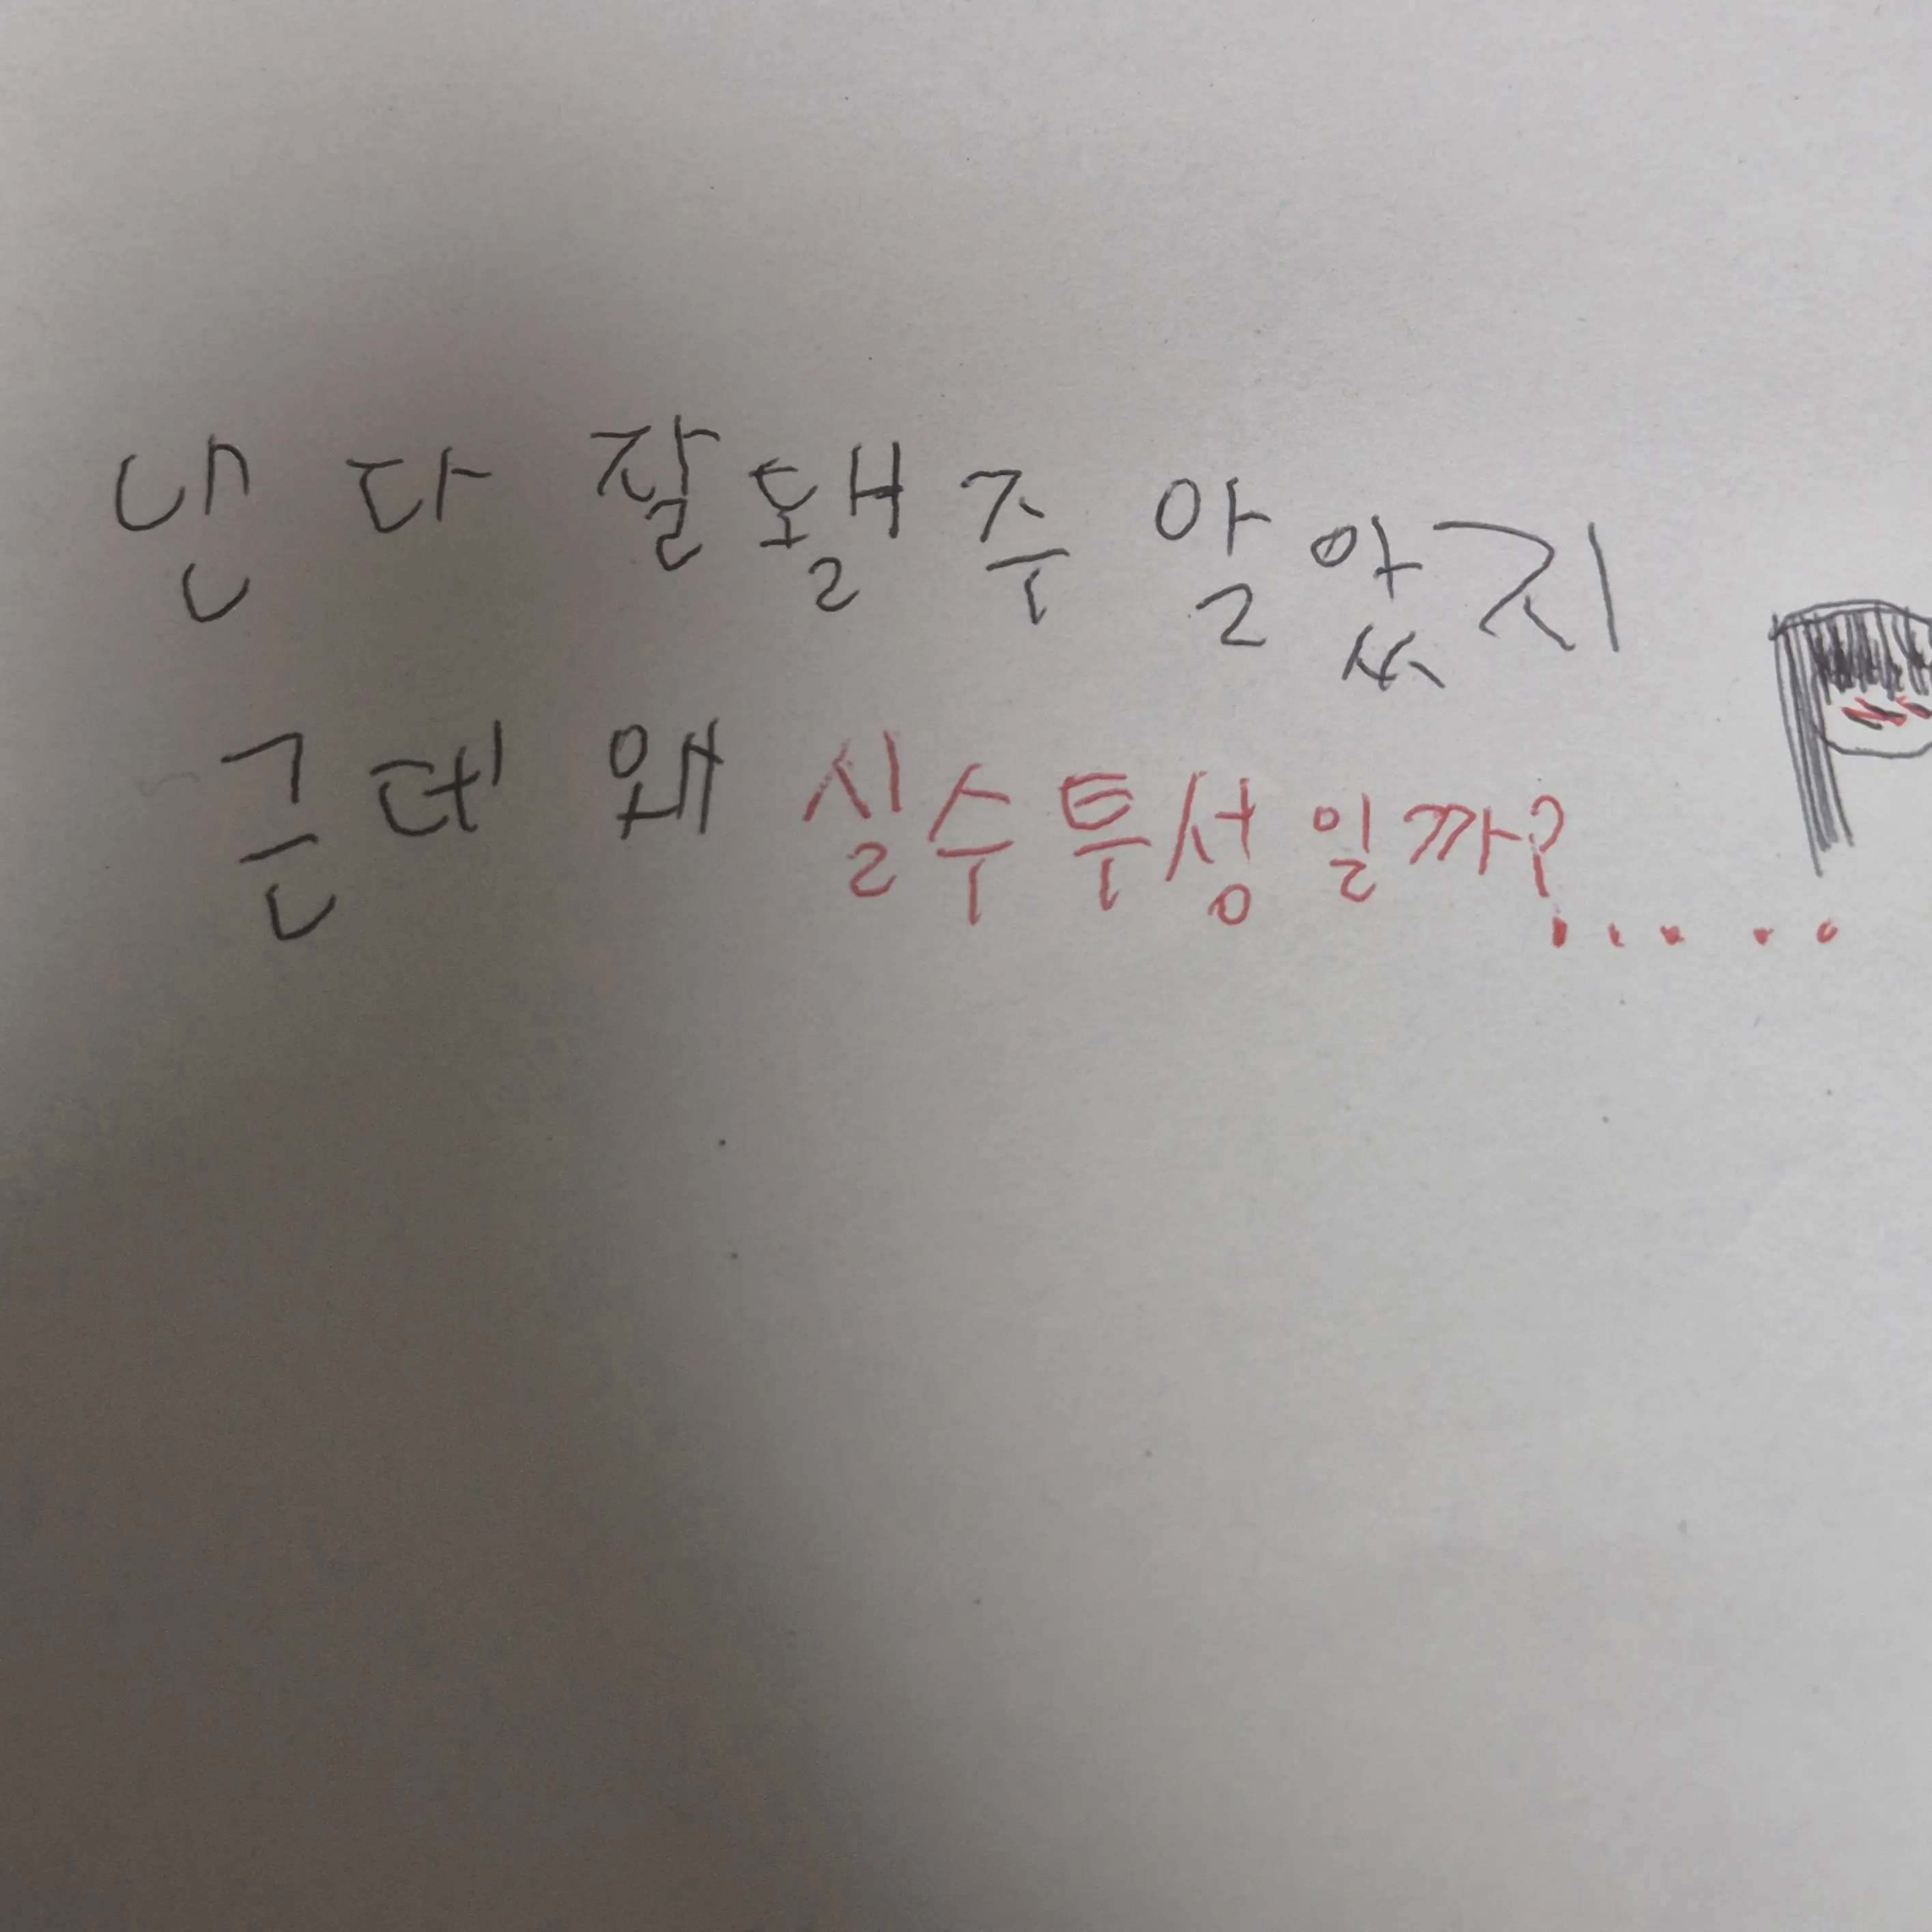 낸 다 잘됄주 알았지
근데 왜 실수투성일까?....